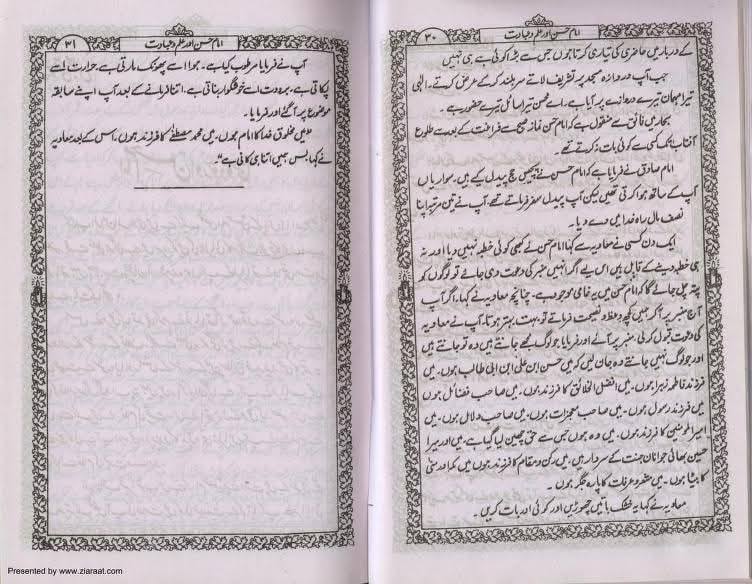 امام حسن اور علم و عبادت
۳۰
کے دربار میں حاضری کی تیاری کرتا ہوں جس سے بڑا کوئی ہے ہی نہیں
جب آپ دروازہ مسجد پر تشریف لاتے سر بلند کر کے عرض کرتے۔ الٰہی
تیرا مہمان تیرے دروازے پر آیا ہے۔ اے محسن تیرا سائل تیرے حضور ہے۔
بحار میں فائق سے منقول ہے کہ امام حسن نماز صبح سے فراغت کے بعد سے طلوع
آفتاب تک کسی سے کوئی بات نہ کرتے تھے۔
امام صادق نے فرمایا ہے کہ امام حسن نے پچیس حج پیدل کیے ہیں۔ سواریاں
آپ کے ساتھ ہوا کرتی تھیں لیکن آپ پیدل سفر فرماتے تھے، آپ نے تین مرتبہ اپنا
نصف مال راہ خدا میں دے دیا۔
ایک دن کسی نے معاویہ سے کہا امام حسن نے کبھی کوئی خطبہ نہیں دیا اور نہ
ہی خطبہ دینے کے قابل ہیں اس لیے اگر انہیں منبر کی دعوت دی جائے تو لوگوں کو
پتہ چل جائے گا کہ امام حسن میں یہ خامی موجود ہے۔ چنانچہ معاویہ نے کہا، اگر آپ
آج منبر پر آ کر ہمیں کچھ وعظ و نصیحت فرماتے تو بہت بہتر ہوتا، آپ نے معاویہ
کی دعوت قبول کر لی منبر پر آئے اور فرمایا جو لوگ مجھے جانتے ہیں وہ تو جانتے ہیں
اور جو لوگ نہیں جانتے وہ جان لیں کہ میں حسن ابن علی ابن ابی طالب ہوں۔ میں
فرزند فاطمہ زہرا ہوں۔ میں افضل الخلائق کا فرزند ہوں۔ میں صاحب فضائل ہوں
میں فرزند رسول ہوں۔ میں صاحب معجزات ہوں۔ میں صاحب دلائل ہوں۔ میں
امیر المومنین کا فرزند ہوں۔ میں وہ ہوں جس سے حق چھین لیا گیا ہے، میں اور میرا
حسین بھائی جوانان جنت کے سردار ہیں، میں رکن و مقام کا فرزند ہوں میں مکہ اور منیٰ
کا بیٹا ہوں۔ میں مشعر و عرفات کا پارہ جگر ہوں۔
معاویہ نے کہا یہ خشک باتیں چھوڑیں اور کوئی اور بات کریں۔
امام حسن اور علم و عبادت
۳۱
آپ نے فرمایا مرطوب کیا ہے۔ ہوا اسے پھونک مارتی ہے حرارت اسے
پکاتی ہے، برودت اسے خوشگوار بناتی ہے، اتنا فرمانے کے بعد آپ اپنے سابقہ
موضوع پر آ گئے اور فرمایا۔
"میں مخلوق خدا کا امام ہوں۔ میں محمد مصطفیٰ کا فرزند ہوں، اس کے بعد معاویہ
نے کہا بس ہمیں اتنا ہی کافی ہے"۔
Presented by www.ziaraat.com